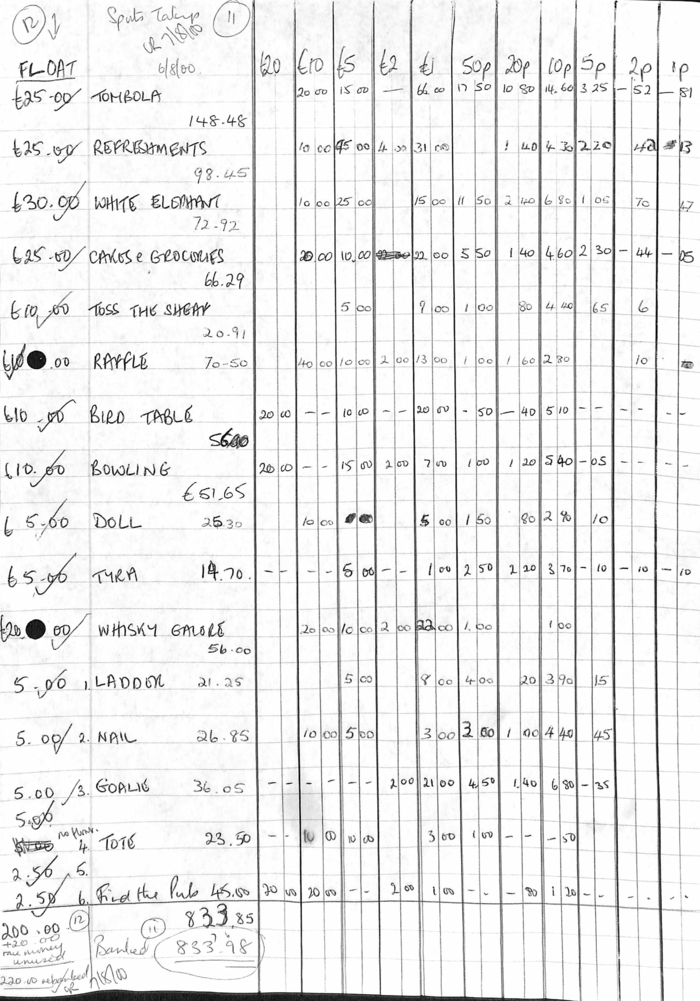 12 Sports Takings 11
CR 7/8/00
FLOAT 6/8/00. £20 £10 £5 £2 £1 50p 20p 10p 5p 2p 1p
£25-00 TOMBOLA 20 00 15 00 — 66 00 17 50 10 80 14.60 3 25 - 52 - 81
148.48
£25.00 REFRESHMENTS 10 00 45 00 4 00 31 00 1 40 4 30 2 20 42 13
98.45
£30.00 WHITE ELEPHANT 10 00 25 00 15 00 11 50 2 40 6 80 1 05 70 47
72.92
£25.00 CAKES & GROCERIES 20 00 10.00 22 00 5 50 1 40 4 60 2 30 - 44 - 05
66.29
£10.00 TOSS THE SHEAF 5 00 9 00 1 00 80 4 40 65 6
20.91
£10 .00 RAFFLE 70-50 40 00 10 00 2 00 13 00 1 00 1 60 2 80 10
£10.00 BIRD TABLE 20 00 - - 10 00 - - 20 00 - 50 - 40 5 10 - - - - - -
56.00
£10.00 BOWLING 20 00 - - 15 00 2 00 7 00 1 00 1 20 5 40 - 05 - - - -
£51.65
£ 5.00 DOLL 25.30 10 00 5 00 1 50 80 2 80 10
£5.00 TYRA 14.70. - - - - 5 00 - - 1 00 2 50 2 20 3 70 - 10 - 10 - 10
£20. 00 WHISKY GALORE 20 00 10 00 2 00 22 00 1.00 1 00
56.00
5.00 1. LADDER 21.25 5 00 8 00 4 00 20 3 90 15
5.00 2. NAIL 26.85 10 00 5 00 3 00 3 00 1 00 4 40 45
5.00 3. GOALIE 36.05 - - - - - - 2 00 21 00 4 50 1.40 6 80 - 35
5.00
4. TOTE 23.50 10 00 10 00 3 00 1 00 - - - 50
2.50 5.
2.50 6. Find the Pub 45.00 20 00 20 00 - - 2 00 1 00 - - - 80 1 20 - - - - - -
200.00 12 11 833.85
+20.00 Banked 833.98
unused
220.00 7/8/00